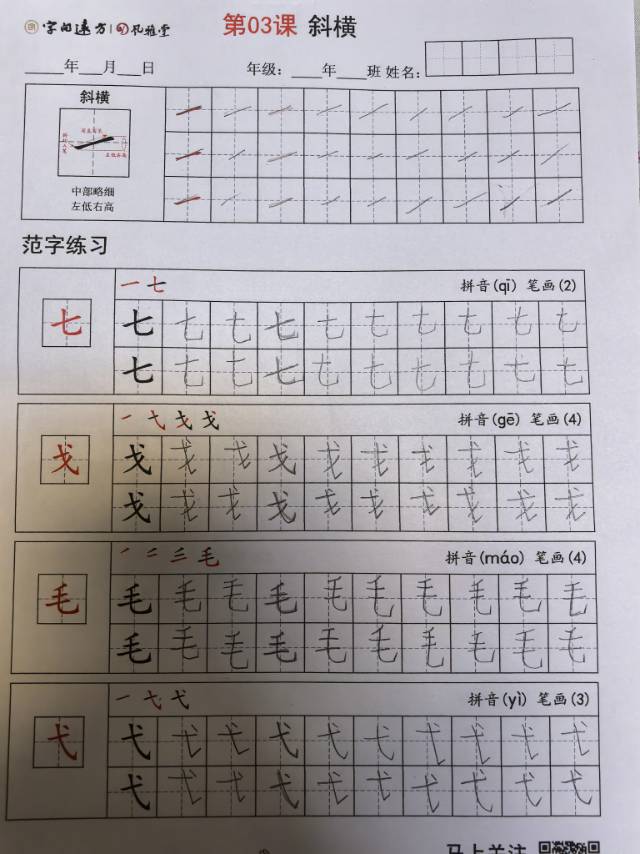 字由远方 风雅堂
第03课 斜横
年 月 日 年级: 年 班 姓名:
斜横
中部略细
左低右高
范字练习
一 七 拼音(qī) 笔画(2)
七 七 七 七 七 七 七 七 七 七 七
七 七 七 七 七 七 七 七 七 七
拼音(gē) 笔画(4)
戈 戈 戈 戈 戈 戈 戈 戈 戈 戈 戈
戈 戈 戈 戈 戈 戈 戈 戈 戈 戈
毛 拼音(máo) 笔画(4)
毛 毛 毛 毛 毛 毛 毛 毛 毛 毛 毛
毛 毛 毛 毛 毛 毛 毛 毛 毛 毛
一 弋 拼音(yì) 笔画(3)
弋 弋 弋 弋 弋 弋 弋 弋 弋 弋 弋
弋 弋 弋 弋 弋 弋 弋 弋 弋 弋
马上关注